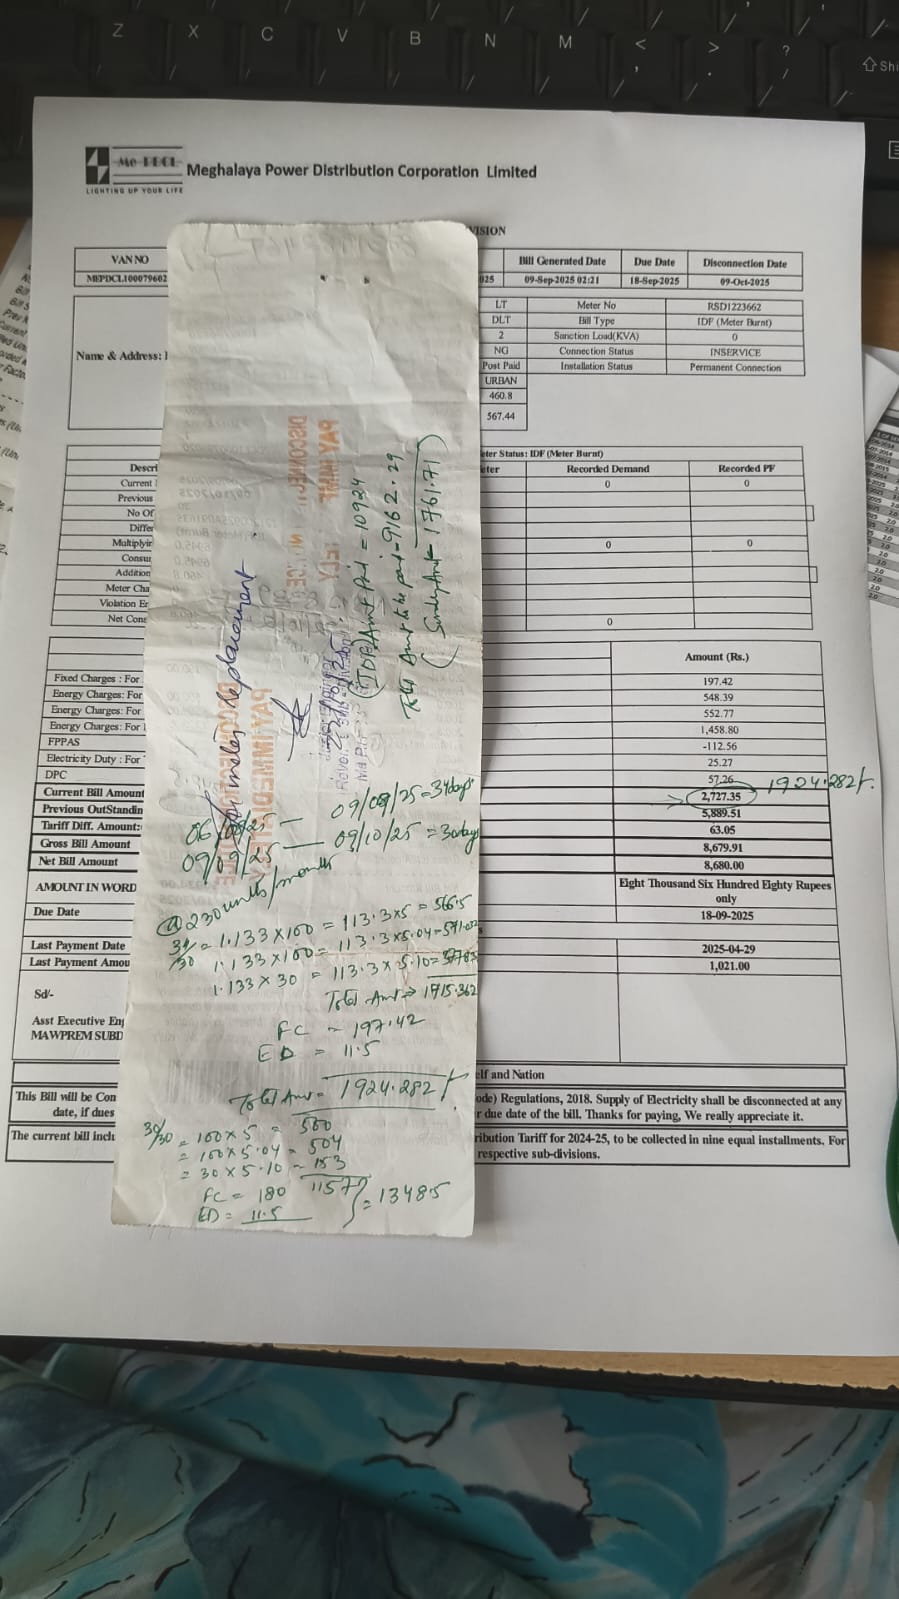 Z X C V B N M < > ?
, . /
Me PDCL
LIGHTING UP YOUR LIFE
Meghalaya Power Distribution Corporation Limited
VISION
VAN NO
Bill Generated Date Due Date Disconnection Date
MEPDCL100079602
025 09-Sep-2025 02:21 18-Sep-2025 09-Oct-2025
Name & Address:
LT Meter No RSD1223662
DLT Bill Type IDF (Meter Burnt)
2 Sanction Load(KVA) 0
NG Connection Status INSERVICE
Post Paid Installation Status Permanent Connection
URBAN
460.8
567.44
eter Status: IDF (Meter Burnt)
Descri eter Recorded Demand Recorded PF
Current 0 0
Previous
No Of
Differ
Multiplyin 0 0
Consu
Addition
Meter Cha
Violation Er
Net Cons 0
Amount (Rs.)
Fixed Charges : For 197.42
Energy Charges: For 548.39
Energy Charges: For 552.77
Energy Charges: For 1,458.80
FPPAS -112.56
Electricity Duty : For 25.27
DPC 57.26
Current Bill Amount 2,727.35
1924.282/-
Previous OutStandin 5,889.51
Tariff Diff. Amount: 63.05
Gross Bill Amount 8,679.91
Net Bill Amount 8,680.00
AMOUNT IN WORD Eight Thousand Six Hundred Eighty Rupees
only
Due Date 18-09-2025
Last Payment Date 2025-04-29
Last Payment Amou 1,021.00
Sd/-
Asst Executive En
MAWPREM SUBD
elf and Nation
This Bill will be Con ode) Regulations, 2018. Supply of Electricity shall be disconnected at any
date, if dues r due date of the bill. Thanks for paying, We really appreciate it.
The current bill inclu ribution Tariff for 2024-25, to be collected in nine equal installments. For
respective sub-divisions.
meter replacement
(IDB) Amt Paid = 10924
Total Amt to be paid = 9162.29
(Sundry Amt = 1761.71)
09/09/25 = 34days
09/09/25 — 09/10/25 = 30days
@ 230units/month
34/30 = 1.133 x 100 = 113.3 x 5 = 566.5
1.133 x 100 = 113.3 x 5.04 =
1.133 x 30 = 113.3 x 5.10 =
Total Amt => 1715.362
FC = 197.42
ED = 11.5
Total Amt = 1924.282/-
30/30 = 100 x 5 = 500
= 100 x 5.04 = 504
= 30 x 5.10 = 153
1157
FC = 180
ED = 11.5
= 1348.5